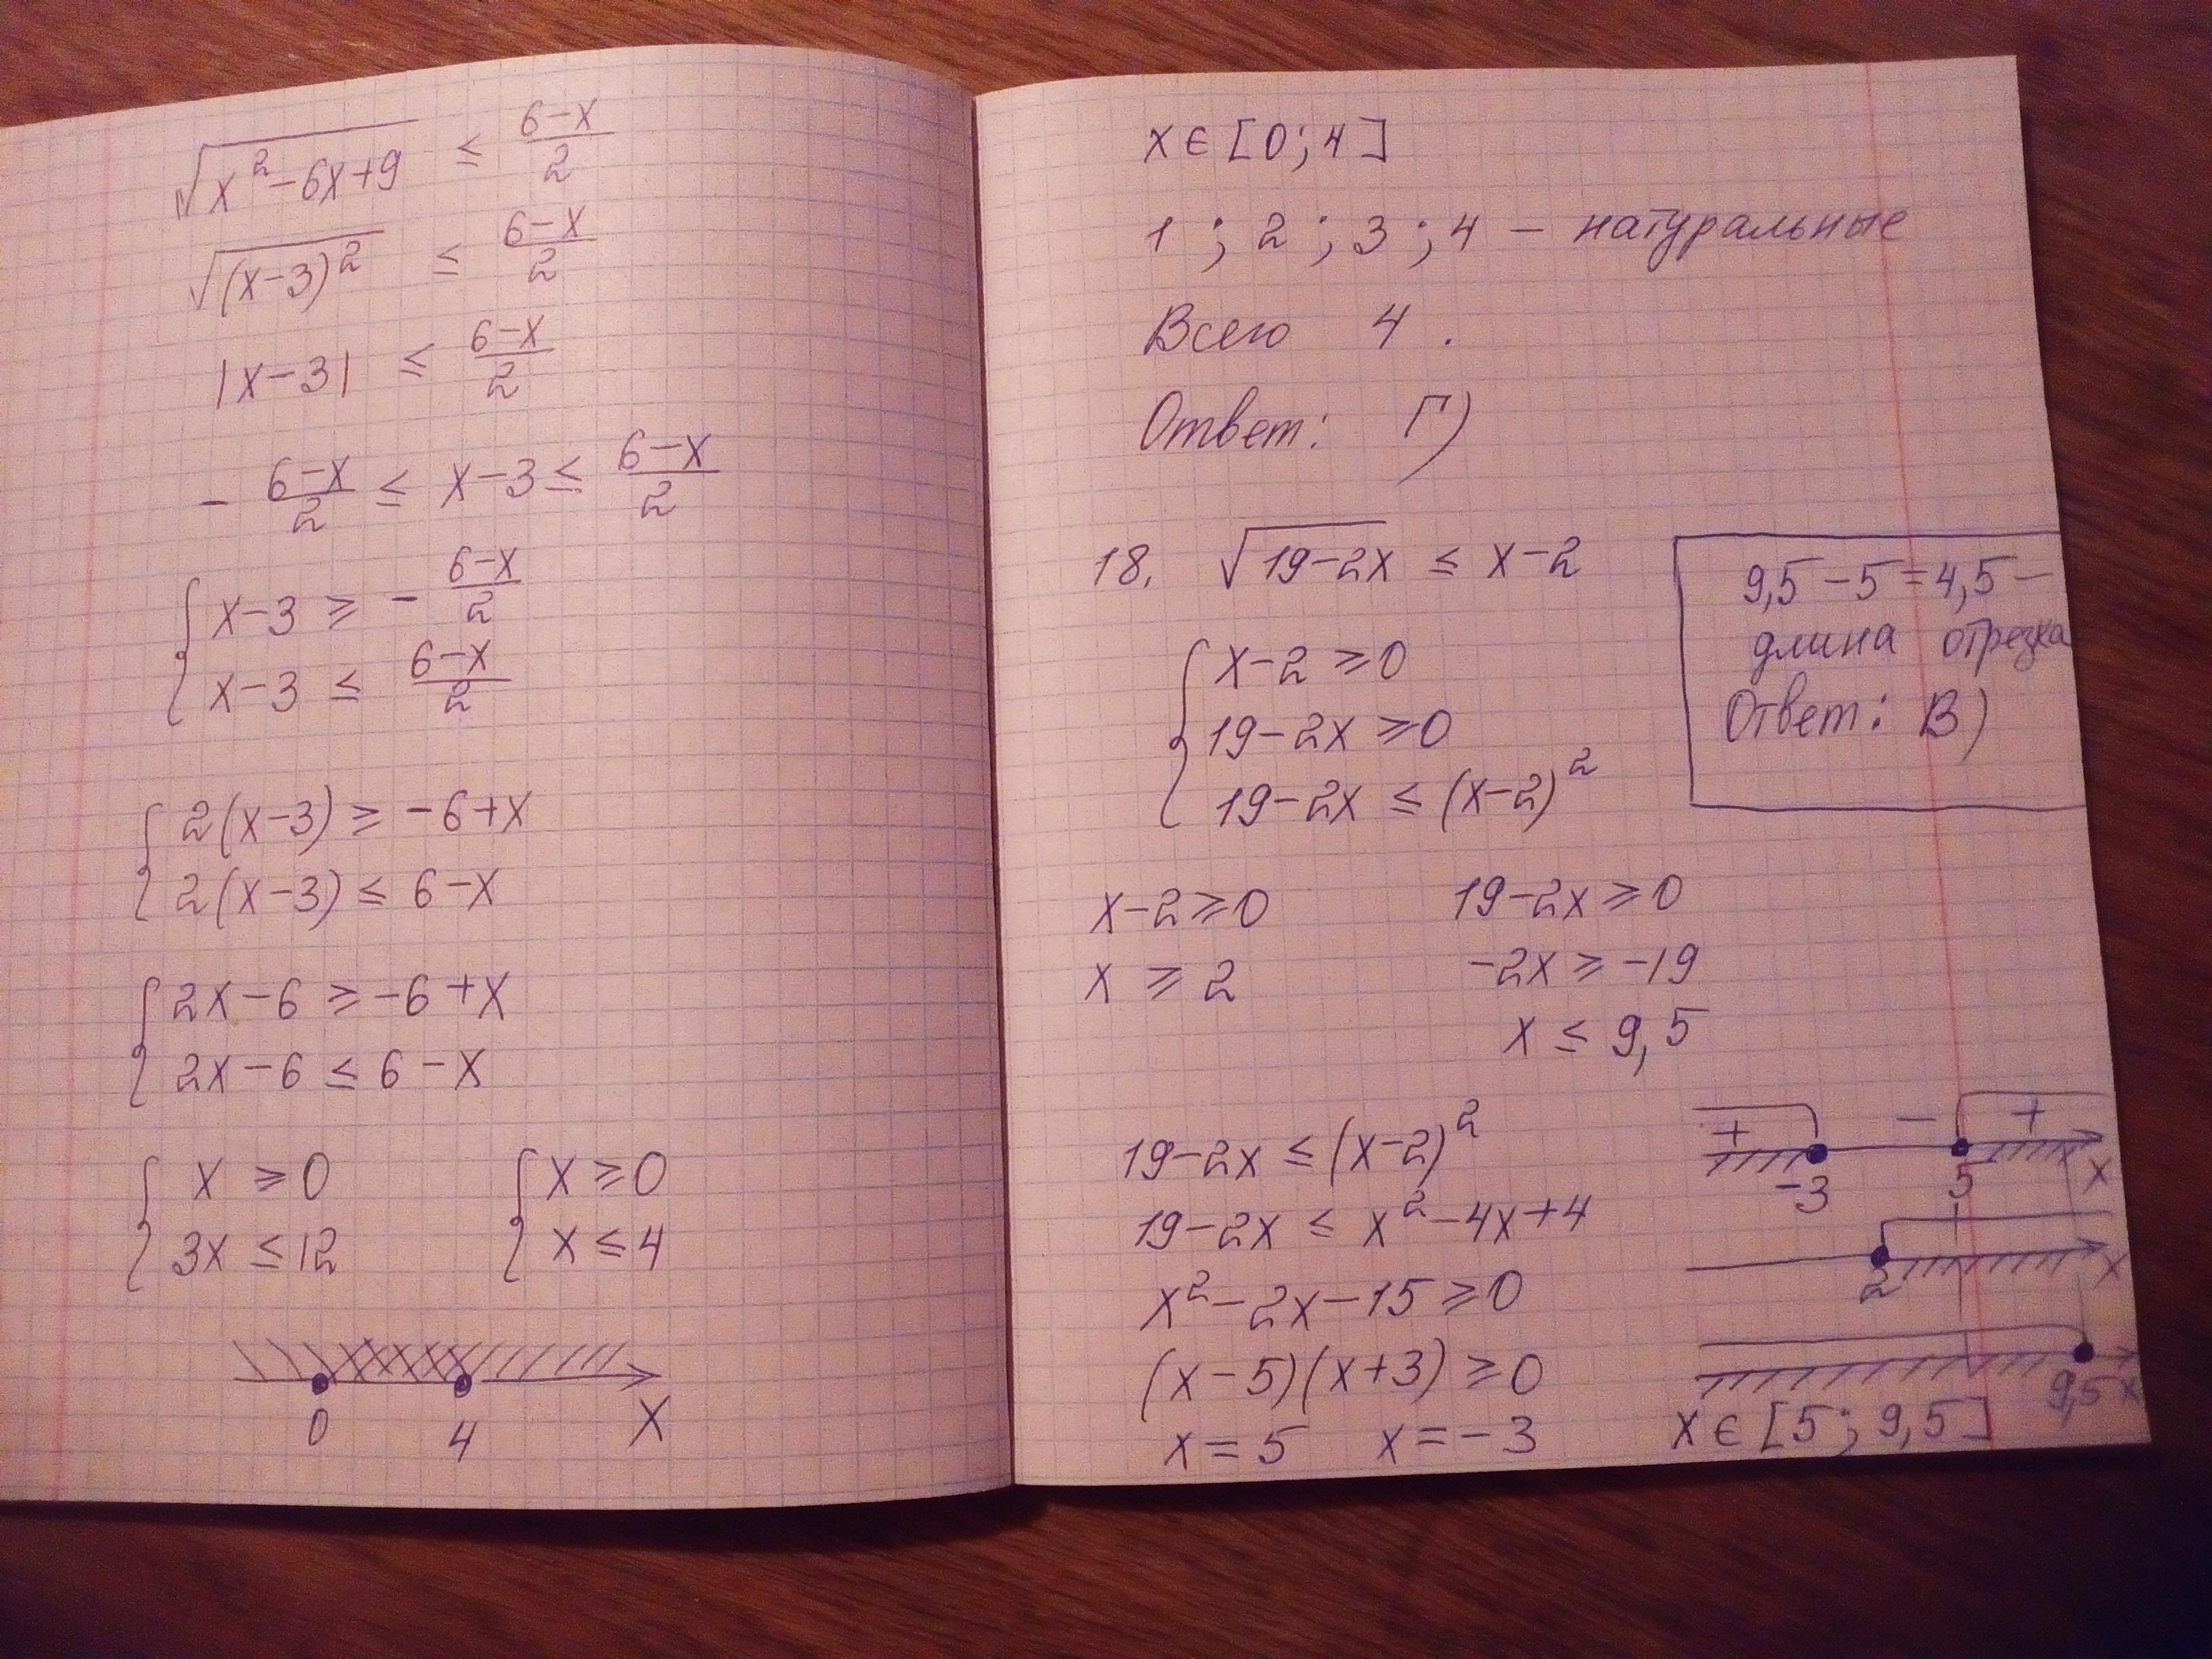 √(x²-6x+9) ≤ (6-x)/2
√((x-3)²) ≤ (6-x)/2
|x-3| ≤ (6-x)/2
- (6-x)/2 ≤ x-3 ≤ (6-x)/2
{ x-3 ≥ - (6-x)/2
x-3 ≤ (6-x)/2
{ 2(x-3) ≥ -6+x
2(x-3) ≤ 6-x
{ 2x-6 ≥ -6+x
2x-6 ≤ 6-x
{ x ≥ 0 { x ≥ 0
3x ≤ 12 x ≤ 4
0 4 x
x ∈ [0; 4]
1; 2; 3; 4 - натуральные
Всего 4.
Ответ: Г)
18. √(19-2x) ≤ x-2
{ x-2 ≥ 0
19-2x ≥ 0
19-2x ≤ (x-2)²
9,5-5=4,5-
длина отрезка
Ответ: В)
x-2 ≥ 0 19-2x ≥ 0
x ≥ 2 -2x ≥ -19
x ≤ 9,5
19-2x ≤ (x-2)²
19-2x ≤ x²-4x+4
x²-2x-15 ≥ 0
(x-5)(x+3) ≥ 0
x=5 x=-3
+ - +
-3 5 x
2 x
9,5 x
x ∈ [5; 9,5]